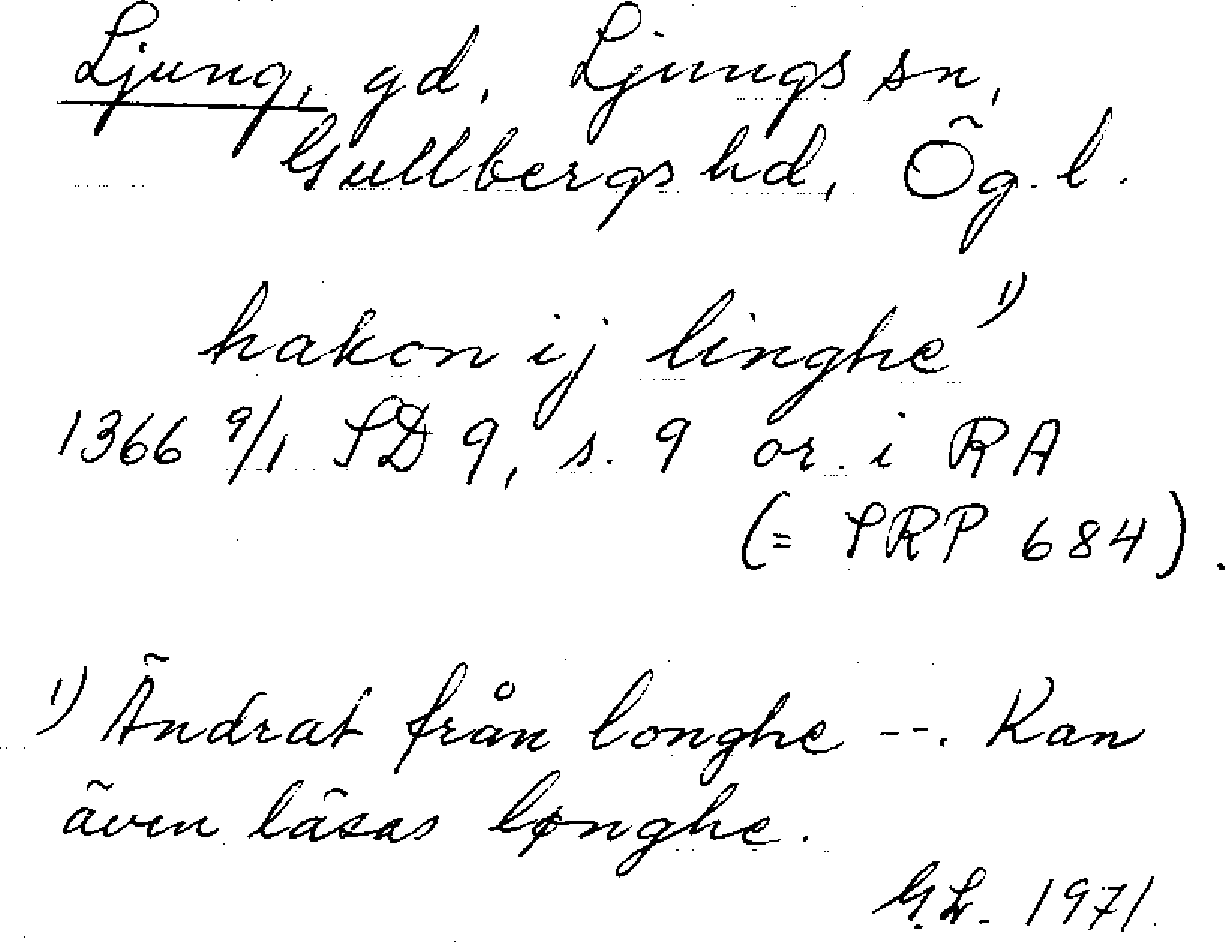 Ljung, gd, Ljungs sn,
Gullbergs hd, Ög. l.
hakon ij linghe 1)
1366 9/1 SD 9, s. 9 or. i RA
(= SRP 684).
1) Ändrat från longhe --. Kan
även läsas lønghe.
G.L. 1971.